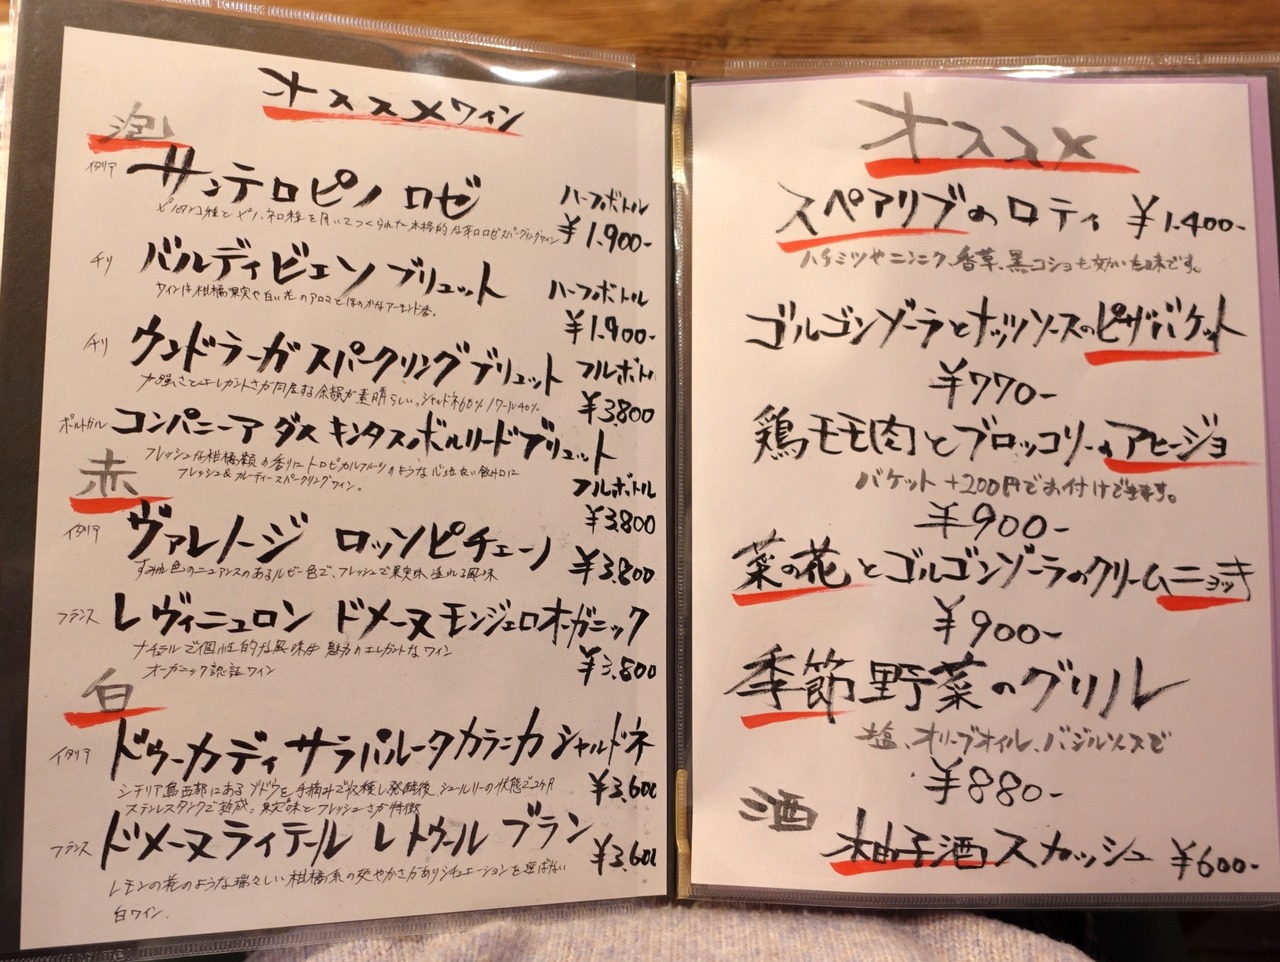 オススメワイン
泡
イタリア
サンテロピノ ロゼ
ハーフボトル
¥1.900-
チリ
バルディビエソ ブリュット
ワインは柑橘果実や白い花のアロマとほのかなアーモンド香。
ハーフボトル
¥1.900-
チリ
ウンドラーガ スパークリングブリュット
フルボトル
力強さとエレガントさが同居する余韻が素晴らしい。シャルドネ60%
¥3.800
ポルトガル
コンパニーア ダス キンタス ボルリードブリュット
フレッシュな柑橘類の香りにトロピカルフルーツのような心地良い飲み口に
フレッシュ&フルーティースパークリングワイン。
フルボトル
¥3800
赤
イタリア
ヴァレノージ ロッソピチェーノ
すみれ色のニュアンスのあるルビー色で、フレッシュで果実味溢れる風味
¥3.800
フランス
レヴィニュロン ドメーヌ モンジェロオーガニック
ナチュラルで個性的な風味が魅力のエレガントなワイン
オーガニック認証ワイン
¥3.800
白
イタリア
ドゥーカディ サラパルータ カラニカ シャルドネ
シチリア島西部にあるブドウを手摘みで収穫し発酵後、シュールリーの状態で2ヶ月
ステンレスタンクで熟成。果実味とフレッシュさが特徴
¥3.600
フランス
ドメーヌ ライテール レトゥール ブラン
¥3.60
レモンの花のような瑞々しい柑橘系の爽やかさがありシチュエーションを選ばない
白ワイン.
オススメ
スペアリブのロティ ¥1.400-
ハチミツやニンニク、香草、黒コショウも効いた味です。
ゴルゴンゾーラとナッツソースのピザバケット
¥770-
鶏モモ肉とブロッコリーのアヒージョ
バケット +200円でお付けできます。
¥900-
菜の花とゴルゴンゾーラのクリームニョッキ
¥900-
季節野菜のグリル
塩、オリーブオイル、バジルソースで
¥880-
酒
柚子酒スカッシュ ¥600-